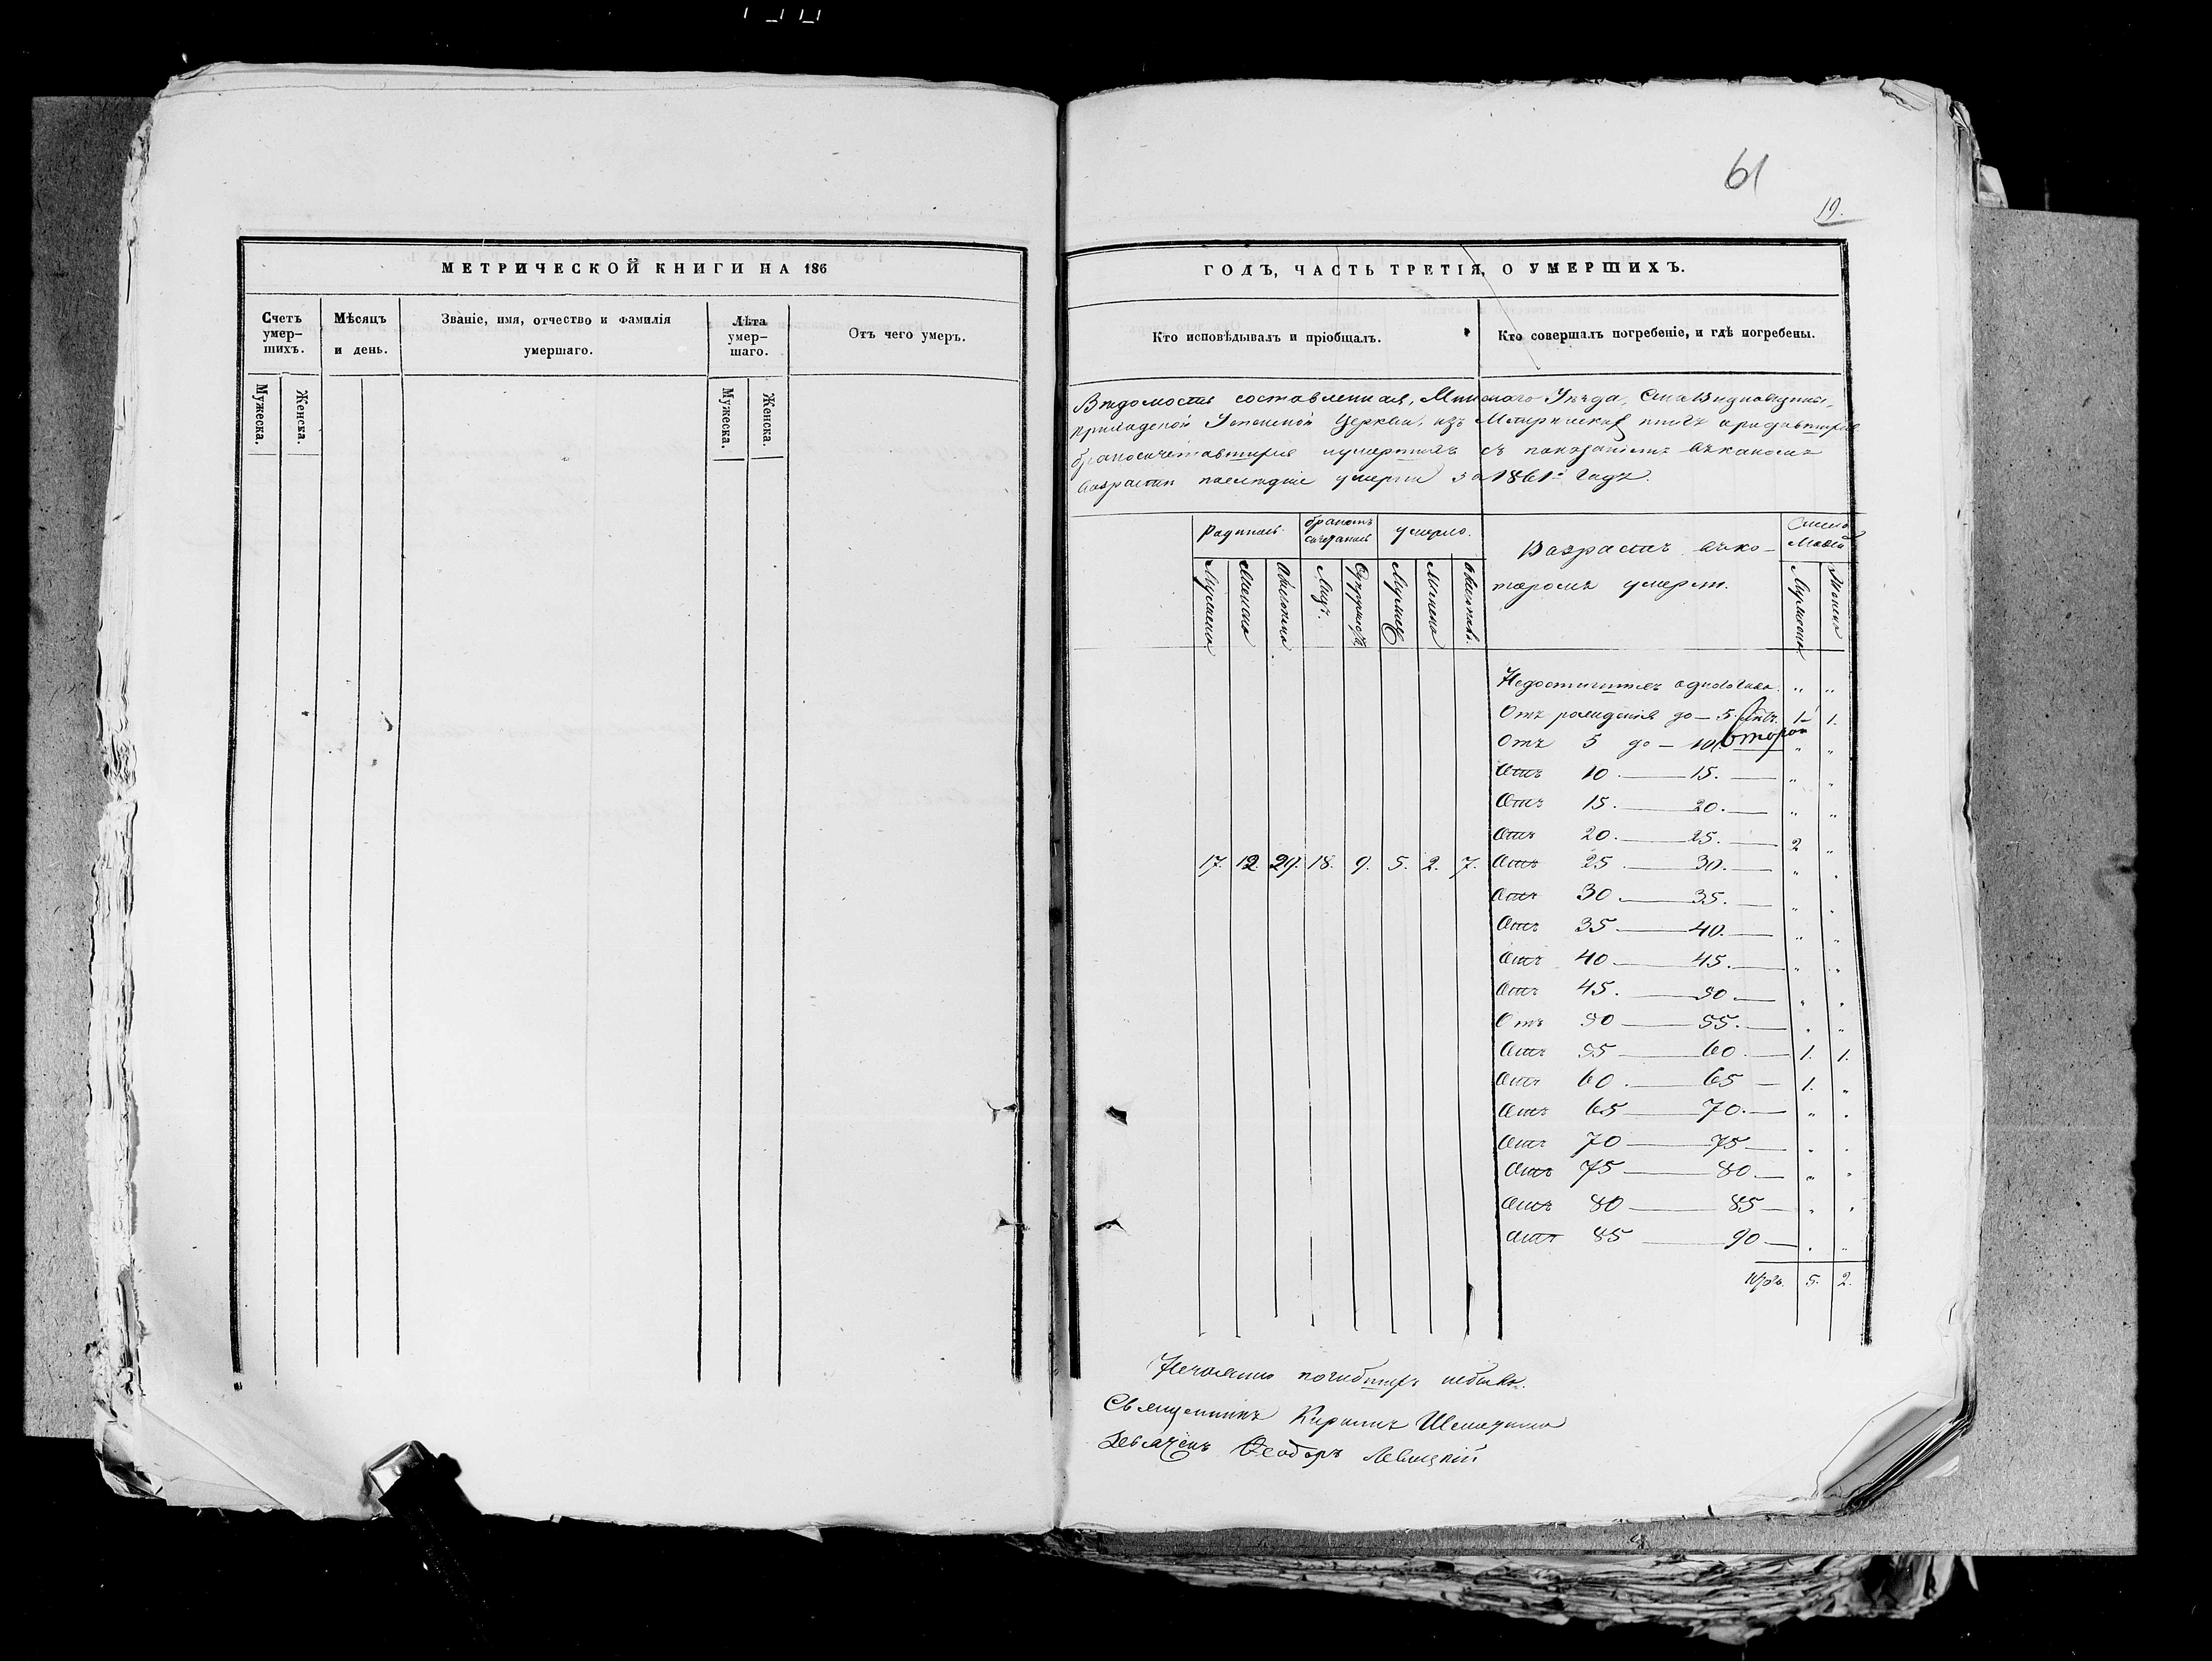 61
19.
МЕТРИЧЕСКОЙ КНИГИ НА 186
Счетъ умер-шихъ.
Мѣсяцъ и день.
Званіе, имя, отчество и фамилія умершаго.
Лѣта умер-шаго.
Отъ чего умеръ.
Мужеска.
Женска.
Мужеска.
Женска.
ГОДЪ, ЧАСТЬ ТРЕТІЯ, О УМЕРШИХЪ.
Кто исповѣдывалъ и пріобщалъ.
Кто совершалъ погребеніе, и гдѣ погребены.
Вѣдомость составленная, Минскаго Уѣзда,
Успенской Церкви, изъ Метрическихъ книгъ
умершихъ съ показаніемъ
умерли за 1861й Годъ.
Родилось
умерло.
Возрастъ въ ко-
торомъ умерли.
Число
Мужеска
Женска
Обоего пола
Лицъ.
Супружествъ
Мужеска
Женска
Мужеска
Женска
Недостигшихъ одного года. " "
Отъ рожденія до — 5. лѣтъ. 1 1.
Отъ 5 до — 10 " "
второй
Отъ 10 — 15. — " "
Отъ 15. — 20. — " "
Отъ 20. — 25. — 2 "
17. 12. 29. 18. 9. 5. 2. 7. Отъ 25 — 30. — " "
Отъ 30 — 35. — " "
Отъ 35 — 40. — " "
Отъ 40 — 45. — " "
Отъ 45. — 50. — " "
Отъ 50 — 55. — " "
Отъ 55 — 60. — 1. 1.
Отъ 60. — 65 — 1. "
Отъ 65 — 70. — " "
Отъ 70 — 75 — " "
Отъ 75 — 80 — " "
Отъ 80 — 85 — " "
Отъ 85 — 90 — " "
5. 2.
Нечаянно погибшихъ небыло.
Священникъ Кирилъ
Ѳеодоръ Левицкій